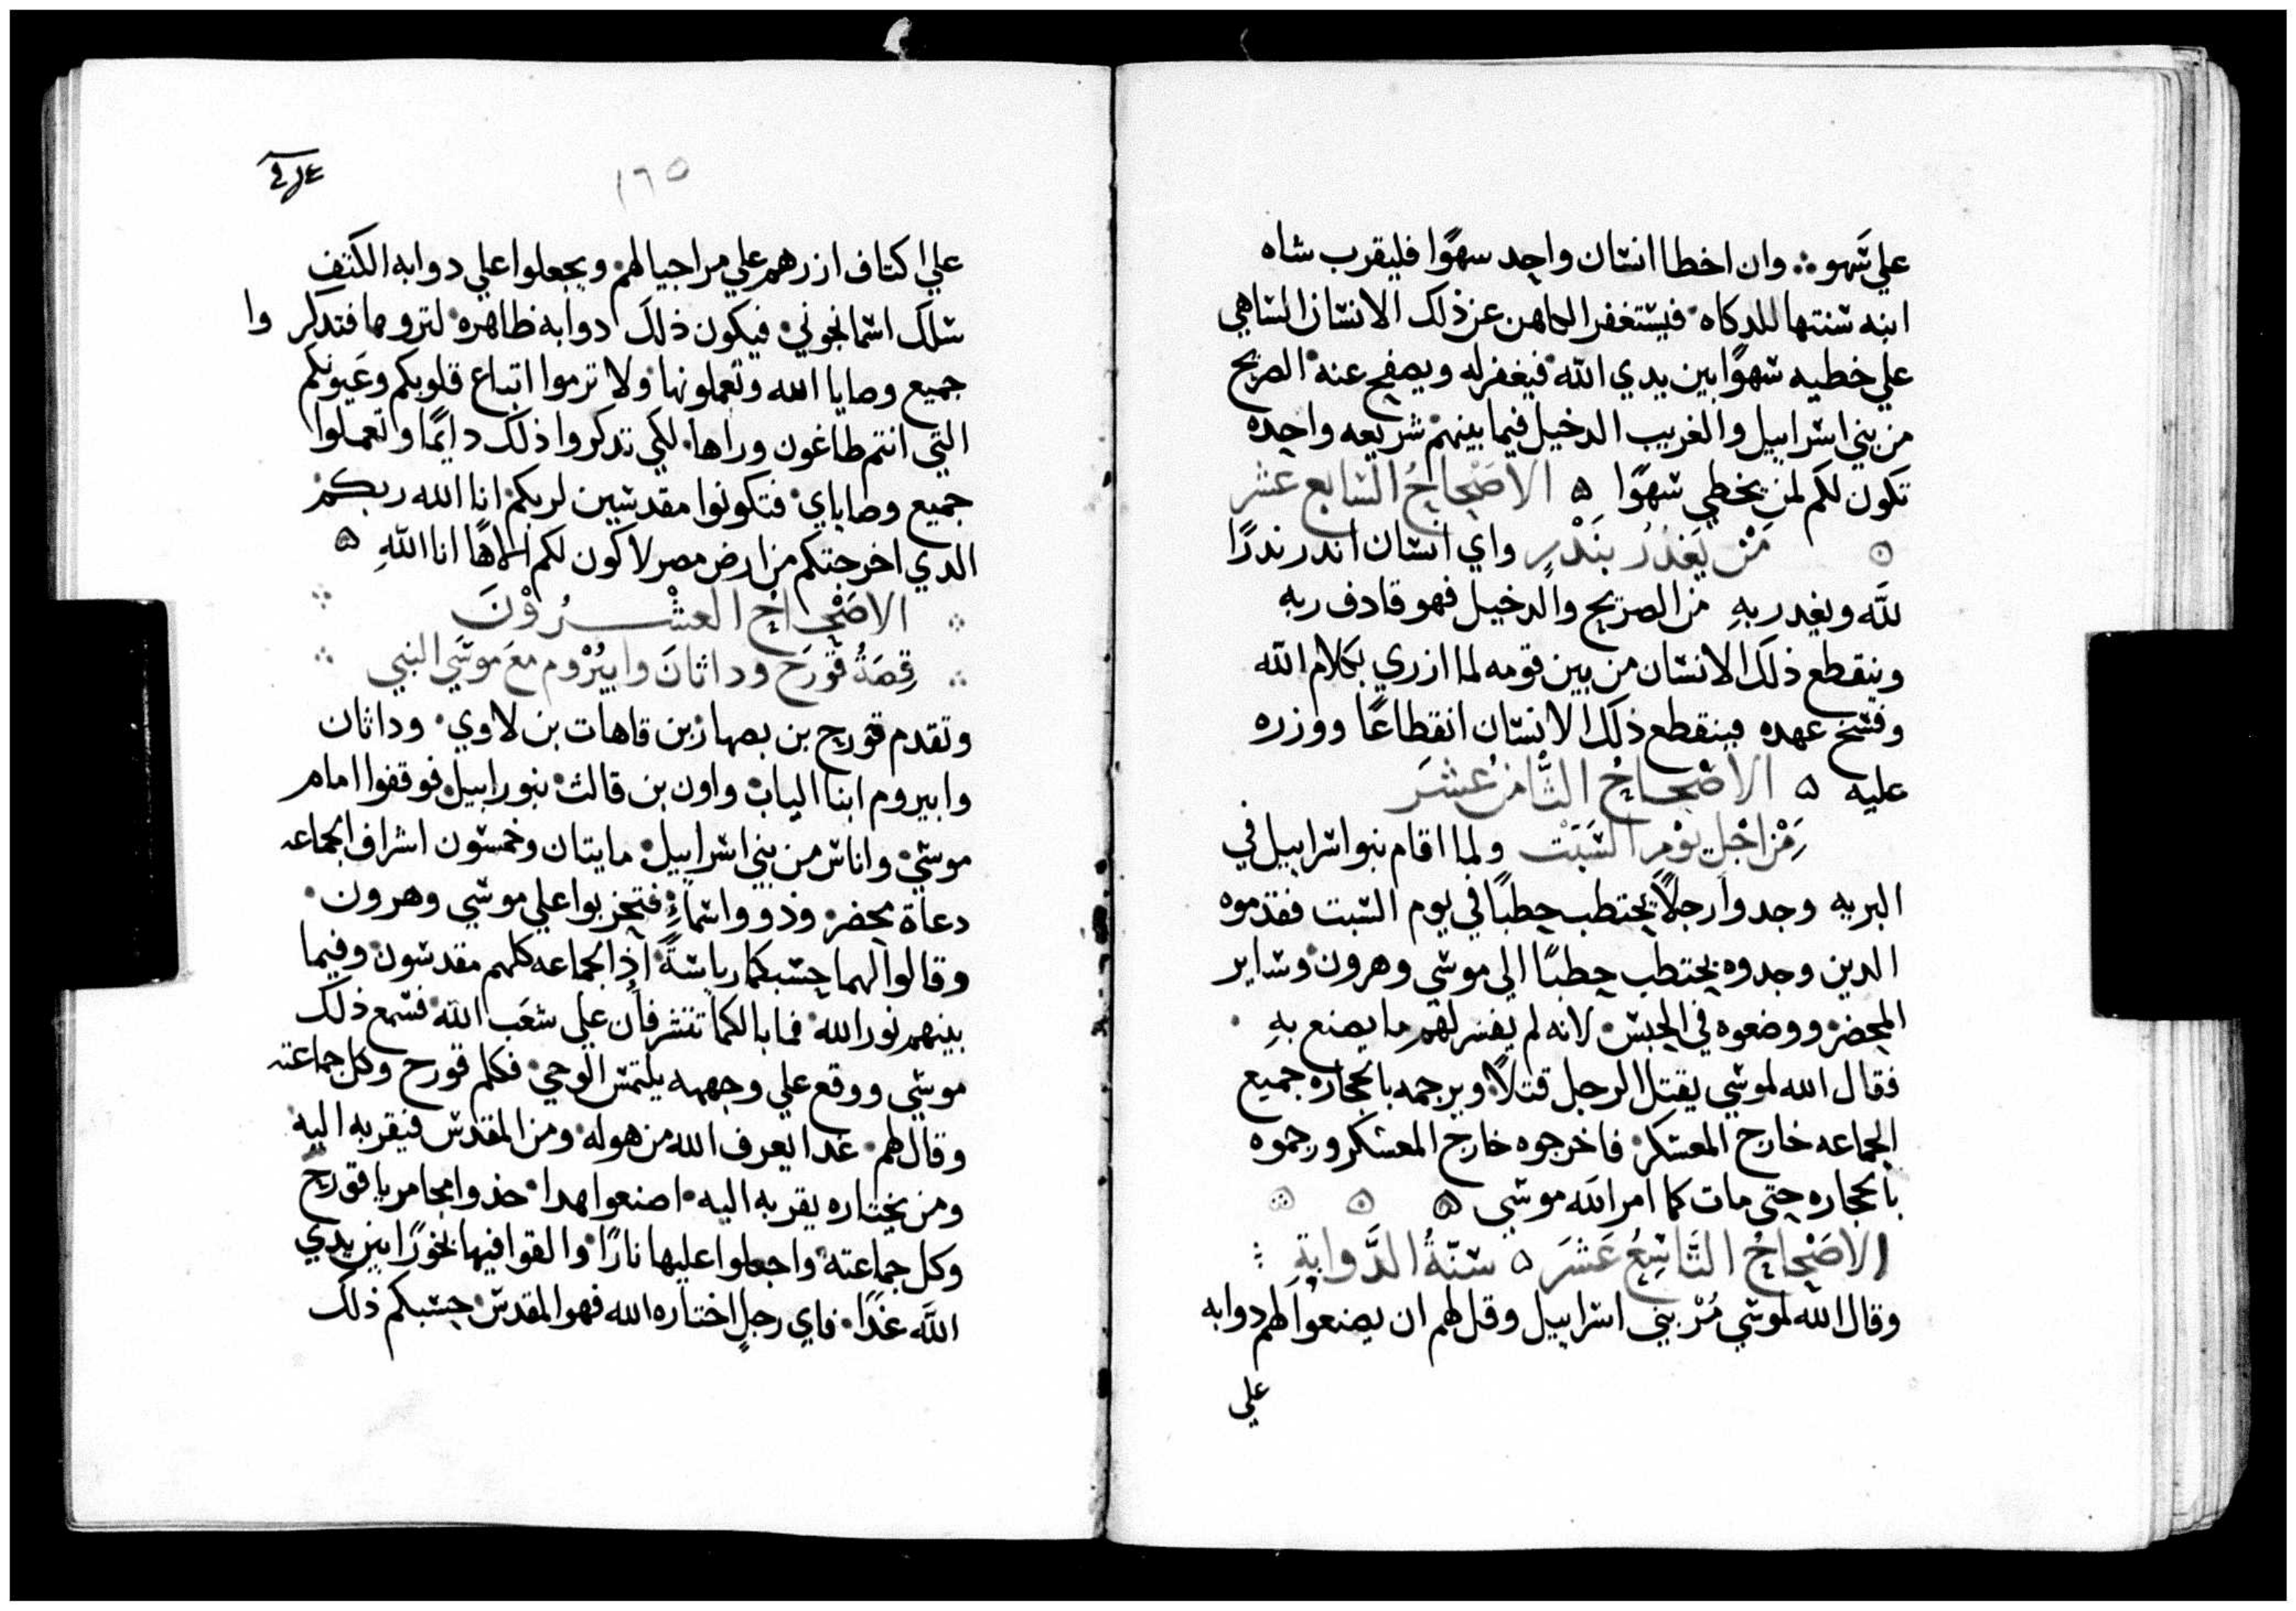 علي سهو ؞ وان اخطا انسان واحد سهوًا فليقرب شاه
ابنه سنتها للدكاه فيستغفر الكاهن عن ذلك الانسان الساهي
علي خطيه سهوًا بين يدي الله فيغفر له ويصفح عنه الصريح
من بني اسراييل والغريب الدخيل فيما بينهم شريعه واحده
تكون لكم لمن يخطي سهوًا ۵ الاصْحاحُ السابع عشر
مَنْ يَغدُرُ بنَدْرٍ واي انسان اندر ندرًا
لله ويغدر بهِ من الصريح والدخيل فهو قادف ربهِ
وينقطع ذلك الانسان من بين قومه لما ازري بكلام الله
وفسخ عهده فينقطع ذلك الانسان انقطاعًا ووزره
عليه ۵ الاصْحاحُ الثَّامنُ عشرَ
مِنْ اجْلِ يَوْمِ السَّبَتْ ولما اقام بنو اسراييل في
البريه وجدوا رجلًا يحتطب حطبًا في يوم السبت فقدموه
الدين وجدوه يحتطب حطبًا الي موسي وهرون وساير
المحضر ووضعوه في الحبس لانه لم يفسر لهم ما يصنع بهِ
فقال الله لموسي يقتل الرجل قتلًا ويرجمه بالحجاره جميع
الجماعه خارج المعسكر فاخرجوه خارج المعسكر ورجموه
بالحجاره حتى مات كما امر الله موسي ۵ ۵ ۵
الاصْحاحُ التَّاسِعُ عَشَرَ ۵ سُنّةُ الدَّوابةِ
وقال الله لموسي مُرْ بني اسراييل وقل لهم ان يصنعوا لهم دوابه
علي
١٦٥
علي اكتاف ازرهم علي مر اجيالهم ويجعلوا علي دوابه الكتف
سلك اسمانجوني فيكون ذلك دوابه ظاهره لتروها فتدكروا
جميع وصايا الله وتعملونها ولا تزموا اتباع قلوبكم وعَيونكم
التي انتم طاغون وراها لكي تدكروا ذلك دايمًا وتعملوا
جميع وصاياي فتكونوا مقدسين لربكم انا الله ربكم
الدي اخرجتكم من ارض مصر لاكون لكم الاهًا انا اللهِ ۵
الاصْحاحُ العشْرُوْنَ
قِصَةُ قَوْرَح وداثانَ وابيُرْوم معَ موسَي النبي
وتقدم قورح بن يصهار بن قاهات بن لاوي وداثان
وابيروم ابنا الياب واون بن قالث بنو رابيل فوقفوا امام
موسي واناس من بني اسراييل مايتان وخمسون اشراف الجماعه
دعاة محضر وذوو اسماءٍ فتحزبوا علي موسي وهرون
وقالوا لهما حسبكما رياسةً اذ الجماعه كلهم مقدسون وفيما
بينهم نور الله فما بالكما تتشرفان علي شعَب الله فسمع ذلك
موسي ووقع علي وجهه يلتمس الوحي فكلم قورح وكل جماعته
وقال لهم غدا يعرف الله من هوله ومن المقدس فيقربه اليه
ومن يختاره يقربه اليه اصنعوا هدا خدوا مجامر يا قورح
وكل جماعته واجعلوا عليها نارًا والقوا فيها بخورًا بين يدي
الله غدًا فاي رجلٍ اختاره الله فهو المقدس حسبكم ذلك